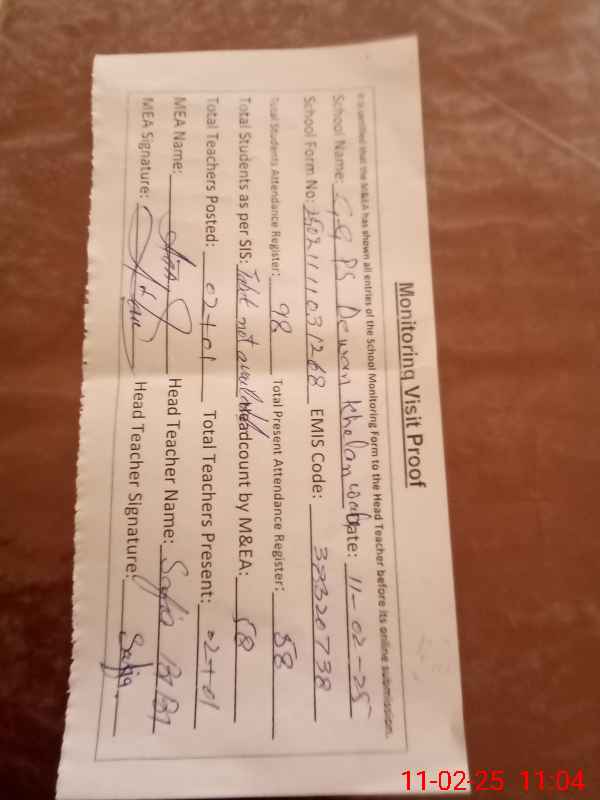 Monitoring Visit Proof
It is certified that the M&EA has shown all entries of the School Monitoring Form to the Head Teacher before its online submission.
School Name: GGPS Dewan Khelan Date: 11-02-25
School Form No: EMIS Code: 38320738
Total Students Attendance Register: 98 Total Present Attendance Register: 58
Total Students as per SIS: Tablet not available Headcount by M&EA: 58
Total Teachers Posted: 02+01 Total Teachers Present: 02+01
MEA Name: Head Teacher Name: Safia
MEA Signature: Head Teacher Signature: Safia.
11-02-25 11:04